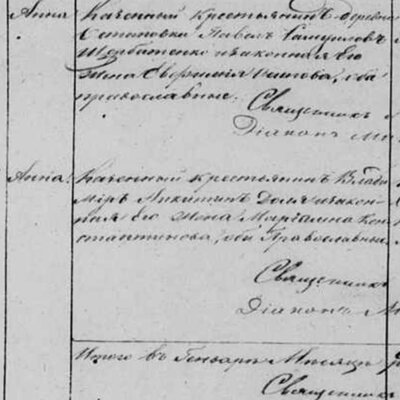 Анна Казенный крестьянинъ деревни
Степановки Павелъ Самуиловъ
Щербатенко и законная его
жена Ивановa, оба
православные.
Священникъ
Діаконъ
Анна Казенный крестьянинъ Влади
міръ Никитинъ Доля и закон-
ная его жена Маріамна Кон
стантинова, оба Православные
Священникъ
Діаконъ
Итого въ Генварѣ Мѣсяцѣ
Священникъ